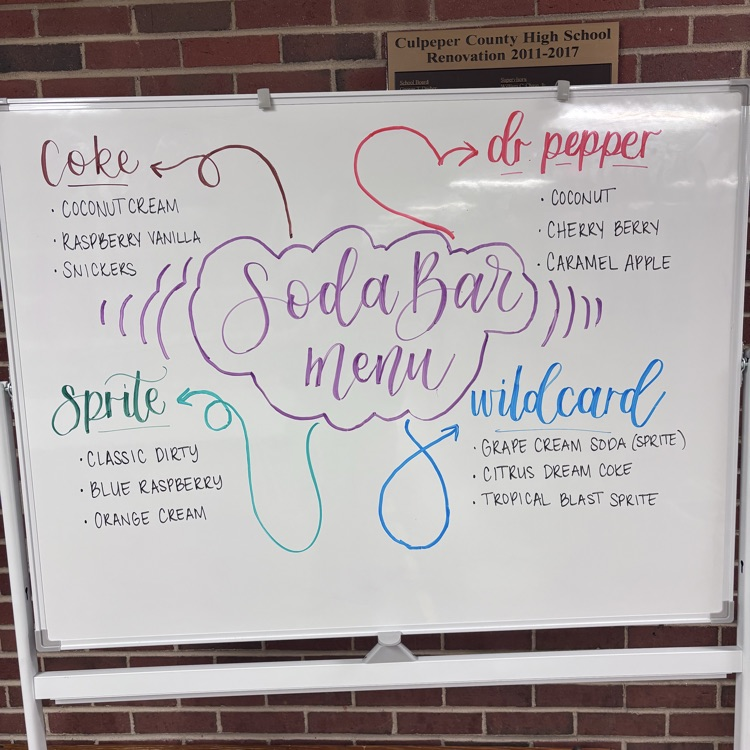 Culpeper County High School
Renovation 2011-2017
School Board
Coke
• COCONUT CREAM
• RASPBERRY VANILLA
• SNICKERS
dr pepper
• COCONUT
• CHERRY BERRY
• CARAMEL APPLE
Soda Bar
menu
Sprite
• CLASSIC DIRTY
• BLUE RASPBERRY
• ORANGE CREAM
wildcard
• GRAPE CREAM SODA (SPRITE)
• CITRUS DREAM COKE
• TROPICAL BLAST SPRITE